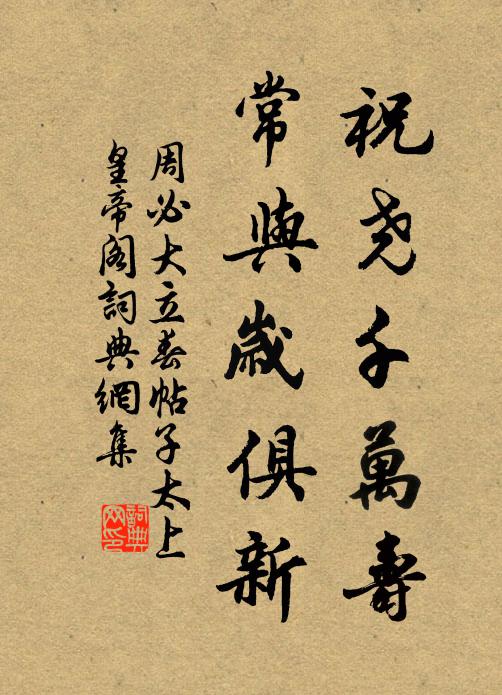 祝尧千萬壽
常與歲俱新
周必大立春帖子太上
皇帝閣詞典網集
詞典
网印